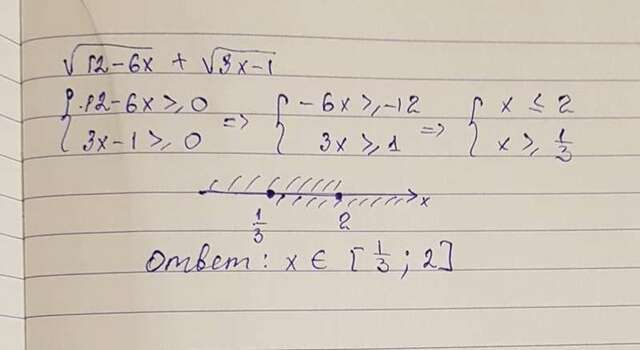 √12-6x + √3x-1
{ 12-6x ≥ 0 => { -6x ≥ -12 => { x ≤ 2
3x-1 ≥ 0 3x ≥ 1 x ≥ 1/3
1/3 2 x
Ответ: x ∈ [1/3; 2]